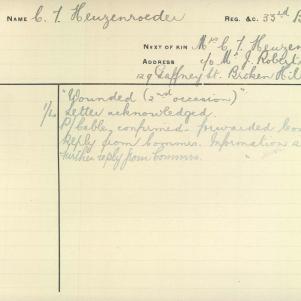 NAME C. F. Heuzenroeder REG. &c. 33rd B
NEXT OF KIN Mrs C. F. Heuzen
ADDRESS c/o Mrs J. Robert
129 Gaffney St. Broken Hil
"Wounded (2nd occasion)"
Letter acknowledged.
P/Cable, confirmed - forwarded
Reply from Commrs. Information
further reply from Commrs.